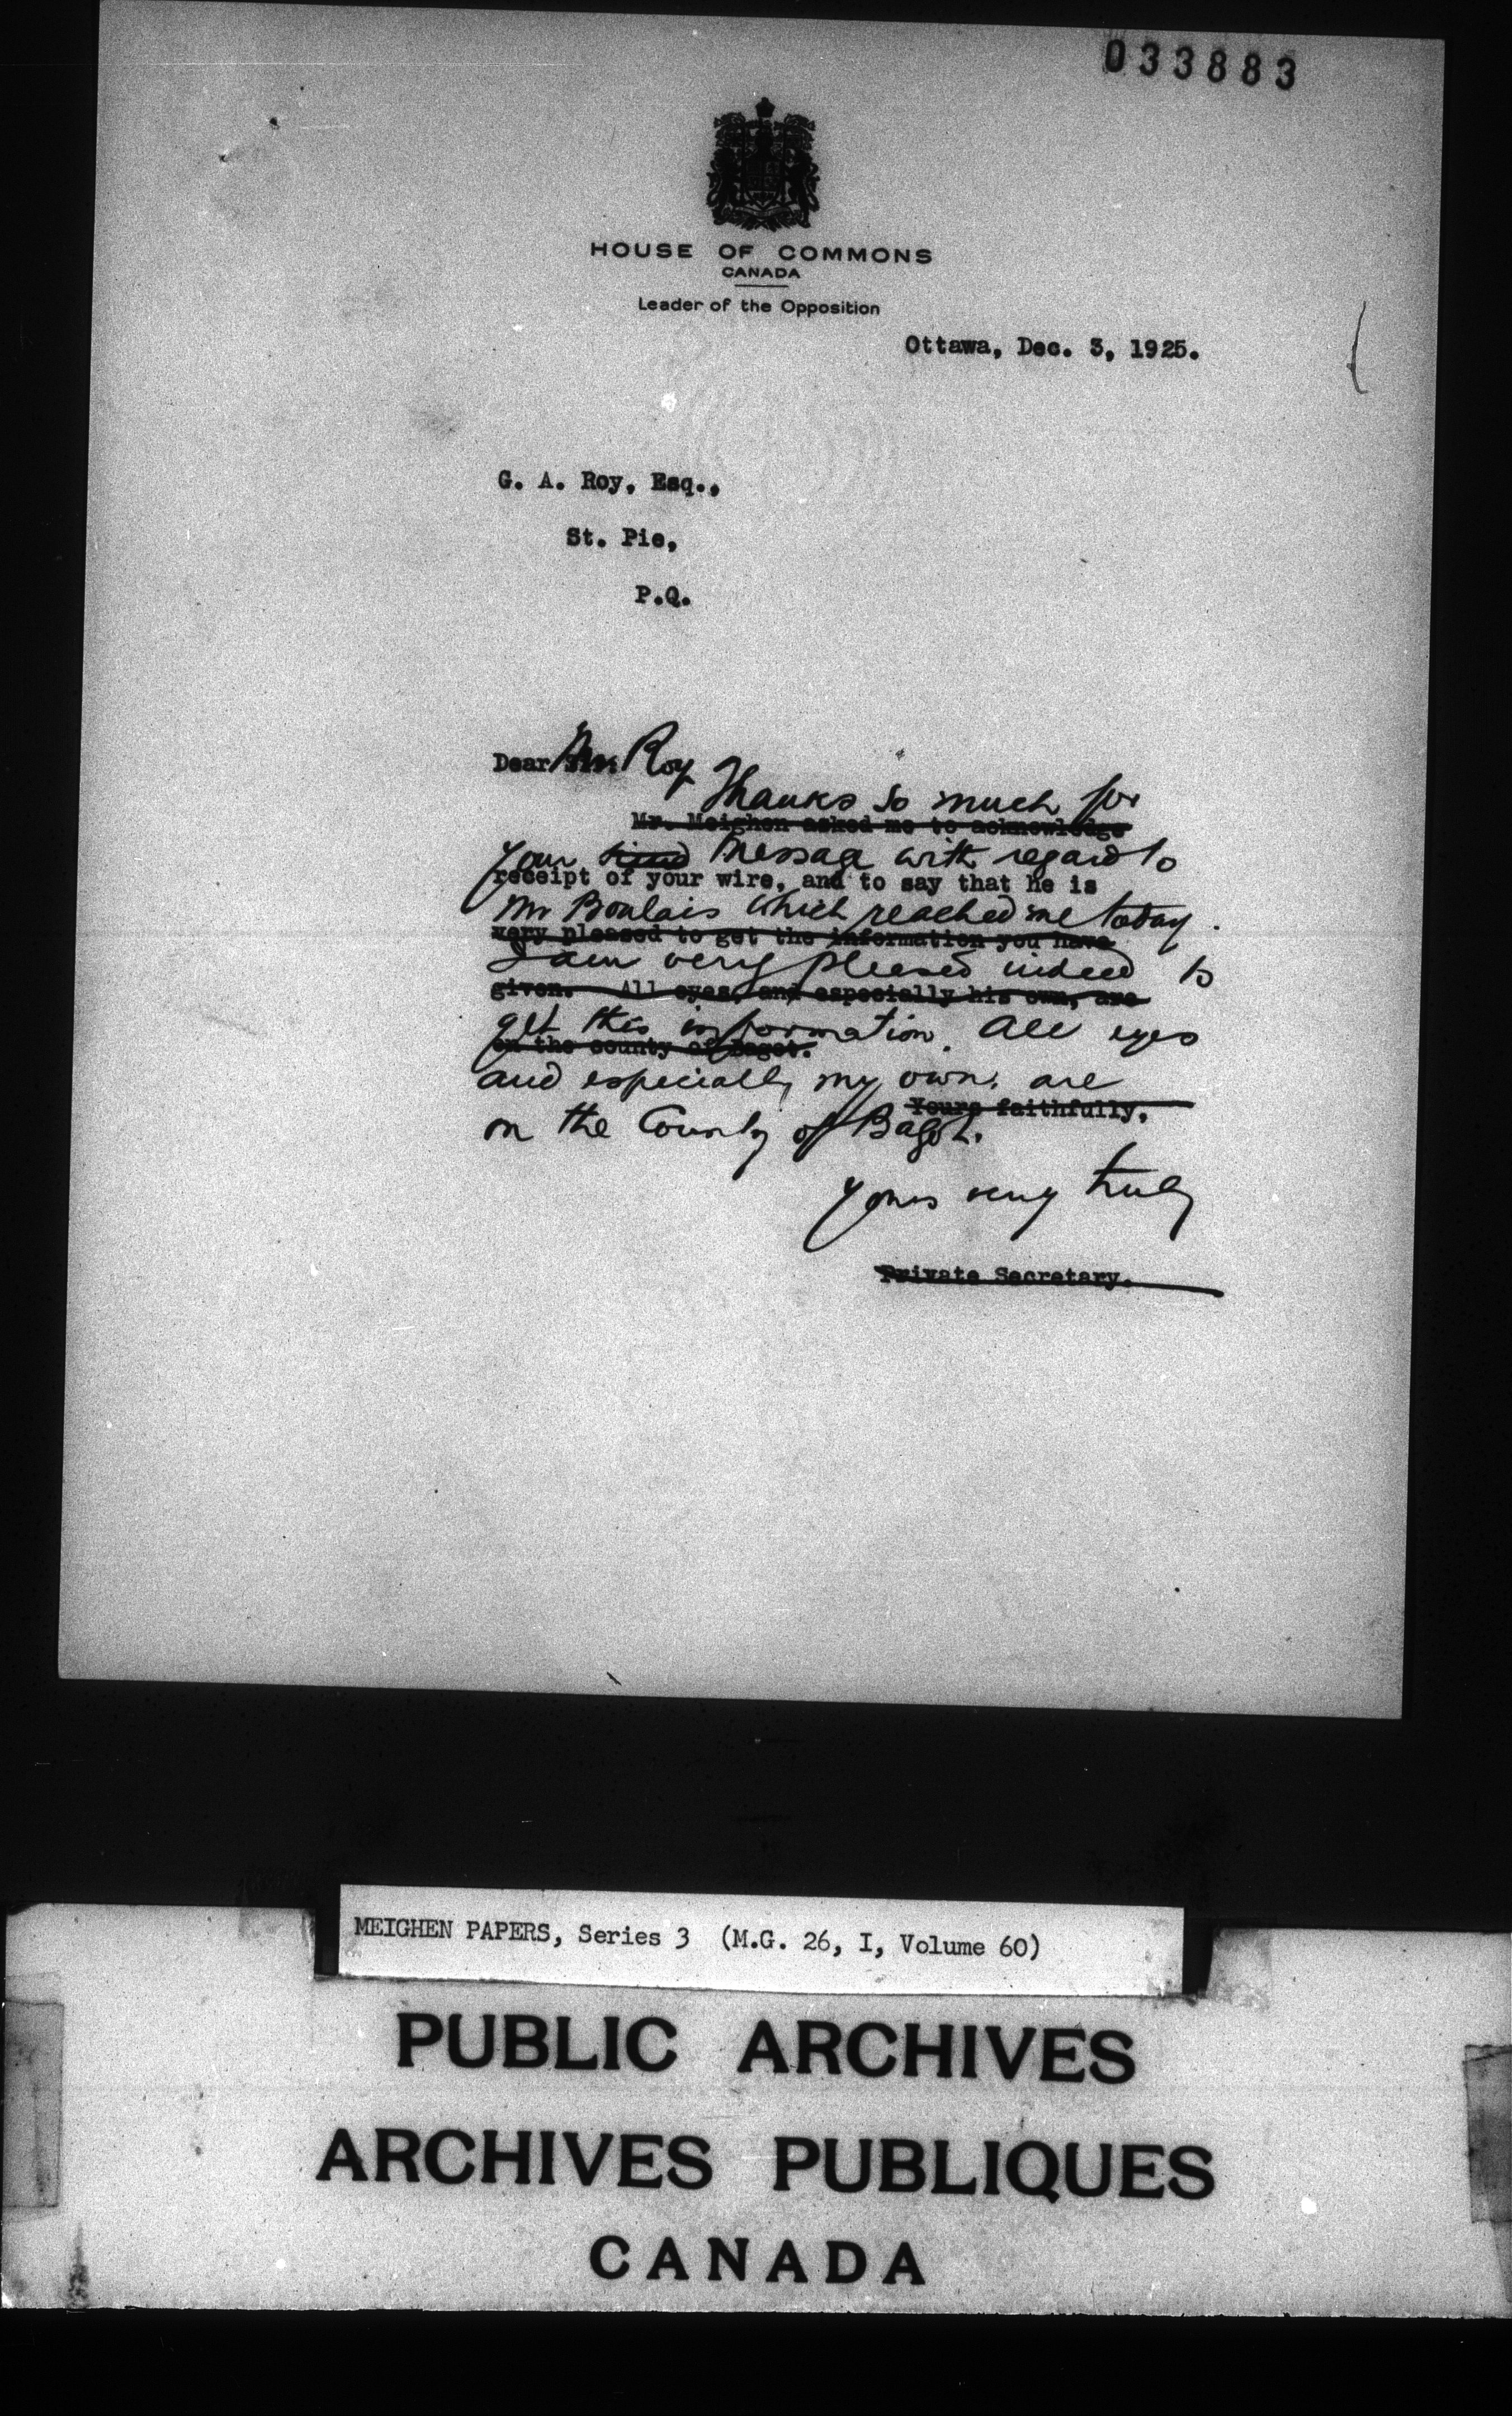 033883
HOUSE OF COMMONS
CANADA
Leader of the Opposition
Ottawa, Dec. 3, 1925.
G. A. Roy, Esq.,
St. Pie,
P.Q.
Dear Sir: Mr Roy
Thanks so much for
Mr. Meighen asked me to acknowledge
your kind message with regard to
receipt of your wire, and to say that he is
Mr Boulais which reached me today.
very pleased to get the information you have
I am very pleased indeed to
given. All eyes, and especially his own, are
get this information. All eyes
on the county of Bagot.
and especially my own, are
Yours faithfully,
on the County of Bagot.
Yours very truly
Private Secretary.
MEIGHEN PAPERS, Series 3 (M.G. 26, I, Volume 60)
PUBLIC ARCHIVES
ARCHIVES PUBLIQUES
CANADA